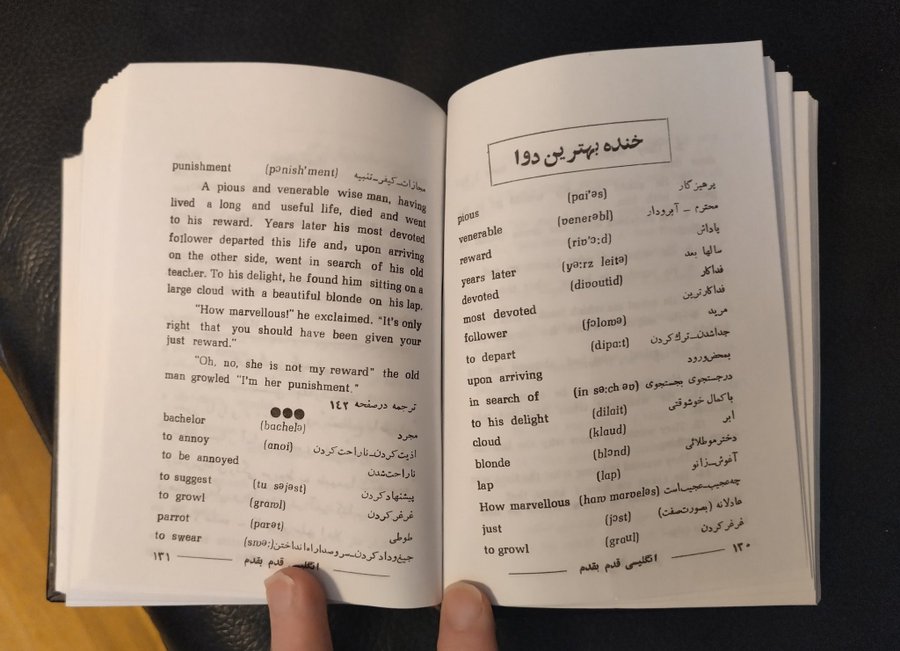 خنده بهترین دوا
pious (pɑi'əs) پرهیزگار
venerable (ʋenerəbl) محترم ـ آبرودار
reward (riʋ'ɔ:d) پاداش
years later (yə:rz leitə) سالها بعد
devoted (diʋoutid) فداکار
most devoted فداکارترین
follower (fɔloɯə) مرید
to depart (dipɑ:t) جداشدن_ترك کردن
upon arriving بمحض‌ورود
in search of (in sə:ch əʋ) درجستجوی بجستجوی
to his delight (dilait) باکمال خوشوقتی
cloud (klaud) ابر
blonde (blɔnd) دخترموطلائی
lap (lap) آغوش_زانو
How marvellous (haɯ marʋeləs) چه‌عجیب_عجیب‌است
just (jɔst) عادلانه (بصورت‌صفت)
to growl (grɑul) غرغرکردن
۱۳۰ انگلیسی قدم بقدم
punishment (pɔnish'ment) مجازات_کیفر_تنبیه
A pious and venerable wise man, having
lived a long and useful life, died and went
to his reward. Years later his most devoted
follower departed this life and, upon arriving
on the other side, went in search of his old
teacher. To his delight, he found him sitting on a
large cloud with a beautiful blonde on his lap.
"How marvellous!" he exclaimed. "It's only
right that you should have been given your
just reward."
"Oh, no, she is not my reward" the old
man growled "I'm her punishment."
ترجمه درصفحه ۱۴۲
bachelor (bachelə) مجرد
to annoy (anoi) اذیت‌کردن_ناراحت‌کردن
to be annoyed ناراحت‌شدن
to suggest (tu səjəst) پیشنهادکردن
to growl (graɯl) غرغرکردن
parrot (parət) طوطی
to swear (sɯə:) جیغ‌ودادکردن_سروصداراه‌انداختن
۱۳۱ انگلیسی قدم بقدم